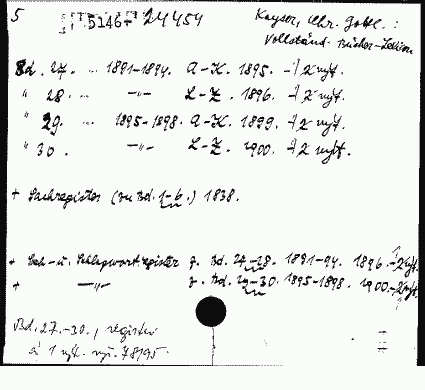 5 5146- 24454 Kayser, Chr. Gottl.:
Vollständ. Bücher-Lexikon
Bd. 27. ... 1891-1894. A-K. 1895.
" 28. ... -"- L-Z. 1896.
" 29. ... 1895-1898. A-K. 1899.
" 30. -"- L-Z. 1900.
+ Sachregister (zu Bd. 1-6.) 1838.
+ Sach- u. Schlagwortregister z. Bd. 27-28. 1891-94. 1896.
+ -"- z. Bd. 29-30. 1895-1898. 1900.
Bd. 27.-30., register
à 1 nyt. nyi. 78195.